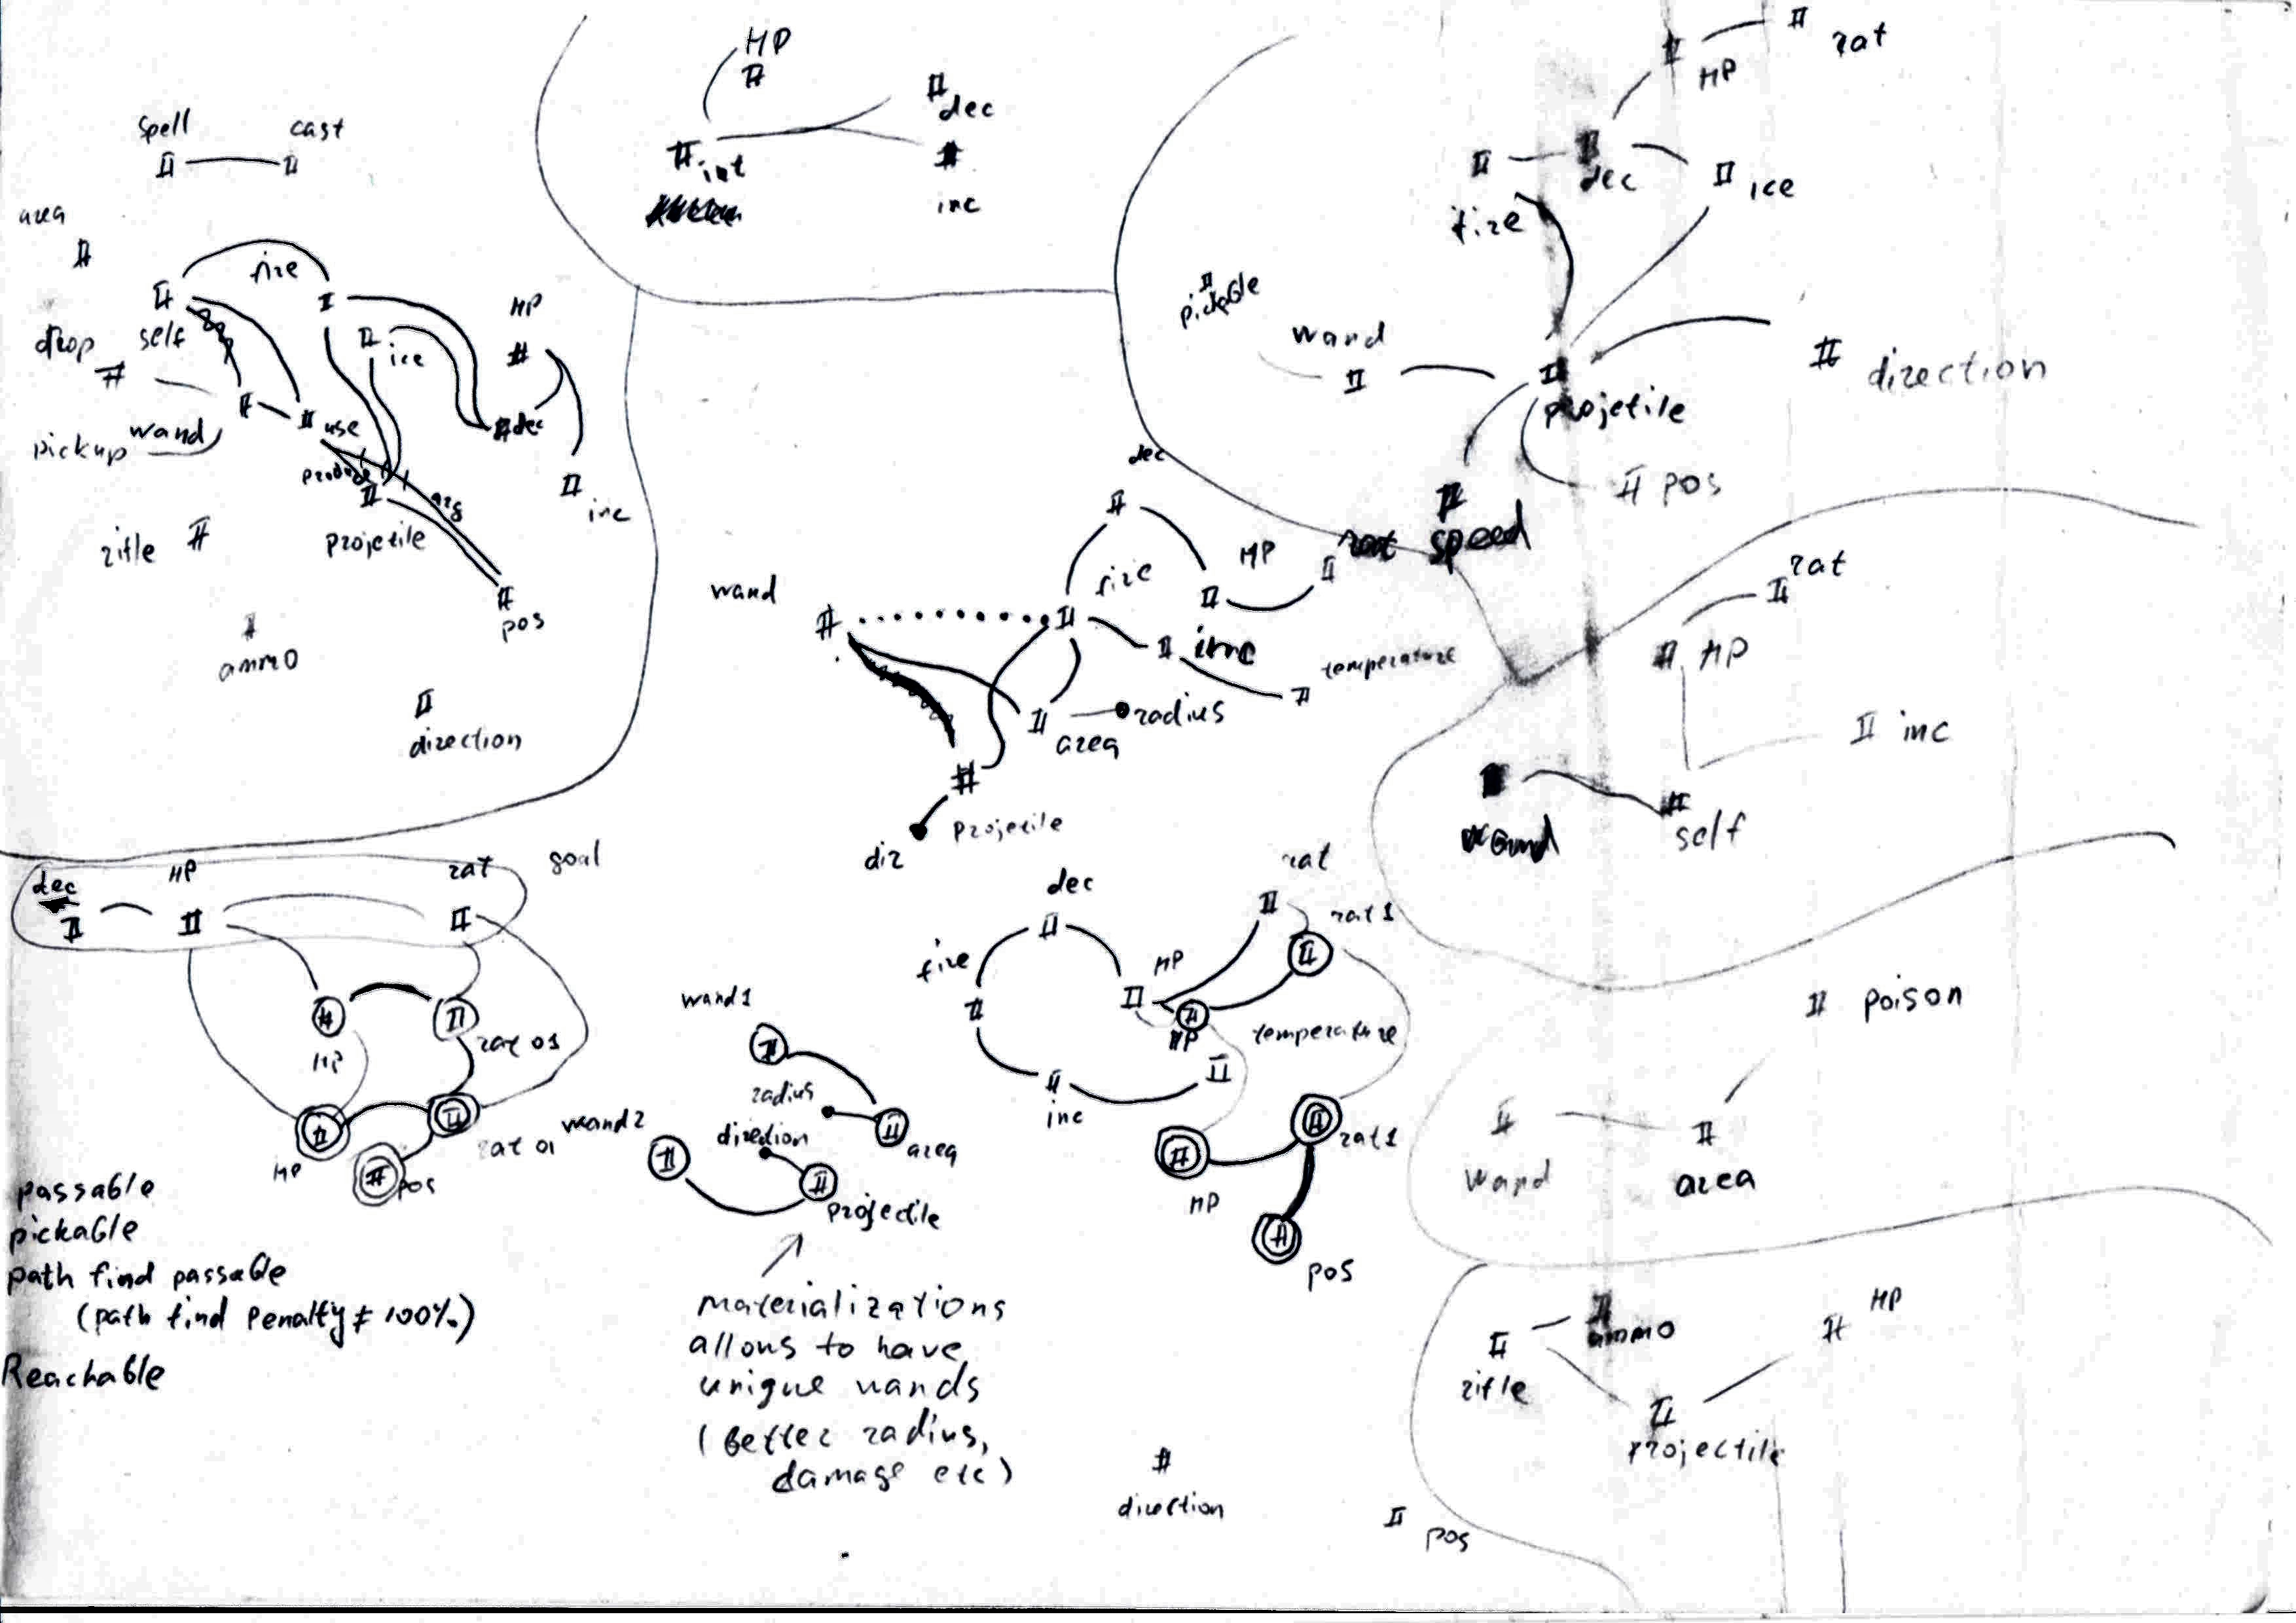 spell
cast
area
fire
self
ice
HP
drop
wand
use
dec
pickup
produce
arg
inc
projectile
rifle
pos
ammo
direction
HP
dec
int
inc
rat
HP
dec
ice
fire
pickable
wand
direction
projetile
pos
speed
dec
fire
HP
rat
wand
inc
temperature
radius
area
projectile
dir
rat
HP
inc
wand
self
goal
dec
HP
rat
HP
rat 01
HP
rat 01
pos
passable
pickable
path find passable
(path find penalty ≠ 100%)
Reachable
wand1
radius
area
wand2
direction
projectile
materializations
allows to have
unique wands
(better radius,
damage etc)
dec
rat
rat 1
fire
HP
HP
temperature
inc
rat1
HP
pos
direction
poison
wand
area
ammo
HP
rifle
projectile
pos